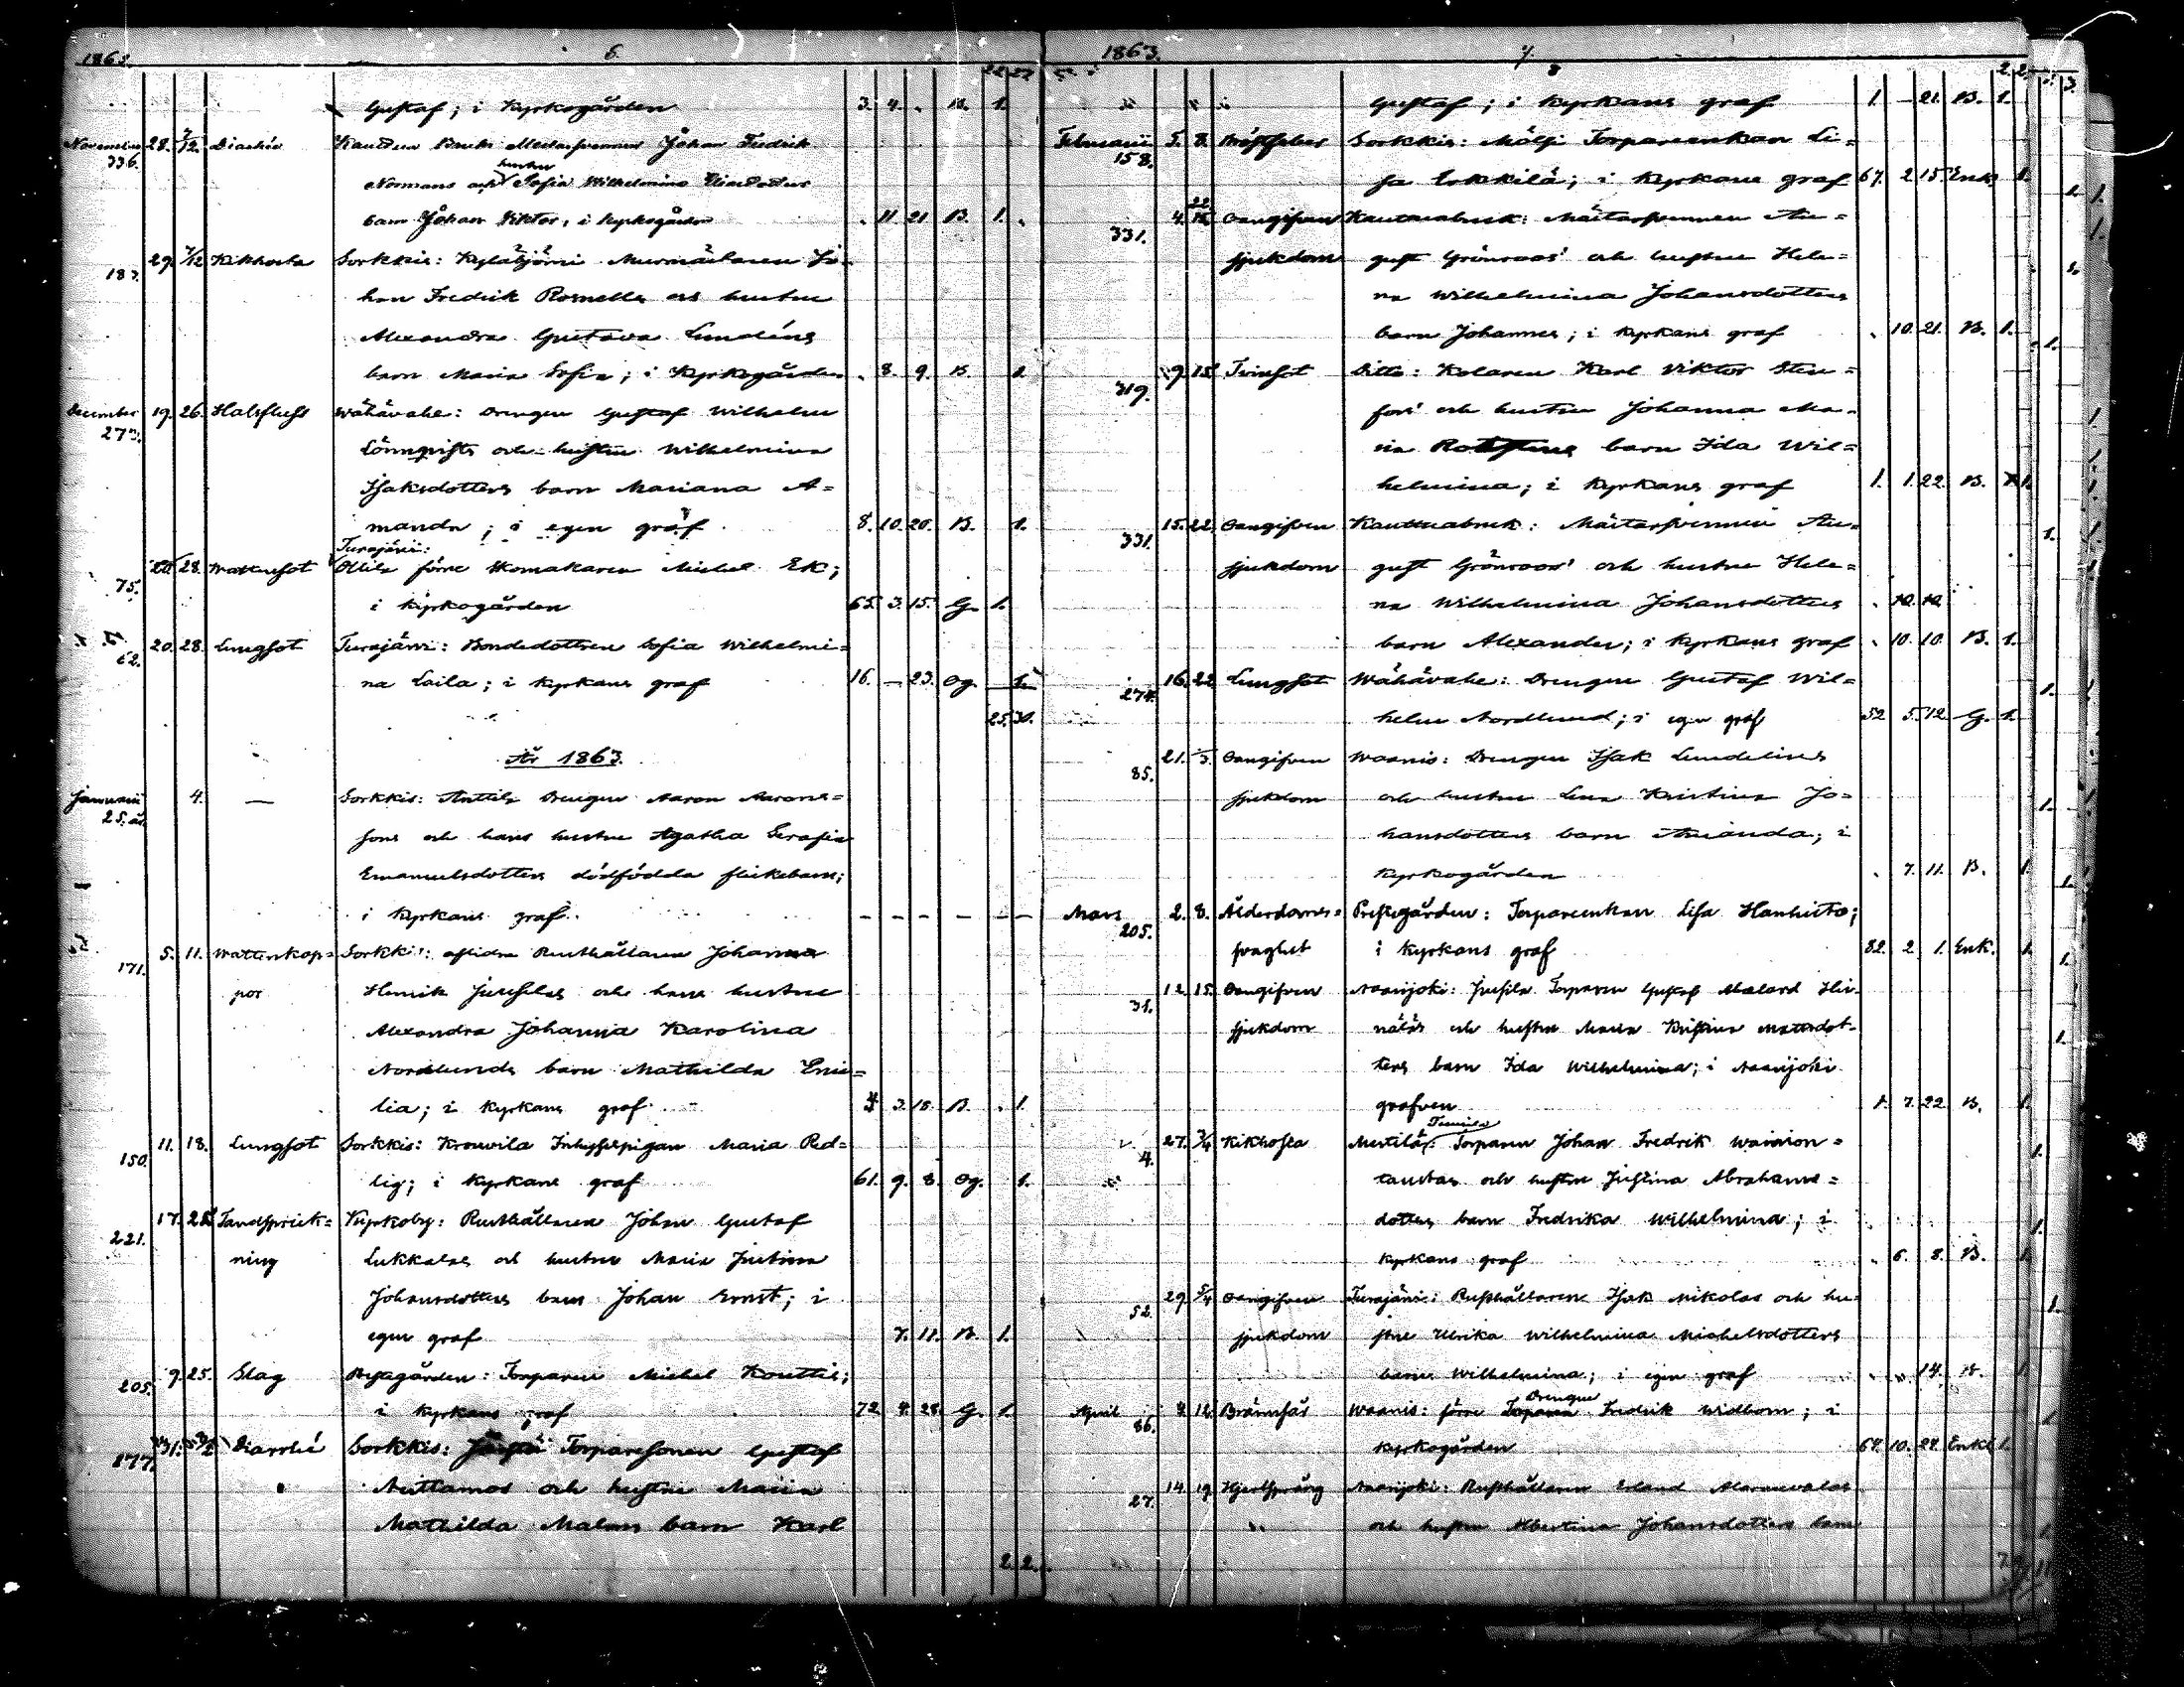 6.
Gustaf; i Kyrkogården 3. 4. . B. 1.
November 28. 7/12. Diarhé Kauttua Bruks Mästersvennen Johan Fredrik
336. Normans och hustru Sofia Wilhelmina
barn Johan Viktor, i Kyrkogården . 11. 21. B. 1.
29. 7/12 Kikhosta Sorkkis: Kyläbjörni Murmästaren Jo-
187. han Fredrik Rosnells och hustru
Alexandra Gustava Lundéns
barn Maria Sofia; i Kyrkogården . 8. 9. B. 1.
December 19. 26. Halsfluss Wähävahe: Drengen Gustaf Wilhelm
273. Lönnqvists och hustru Wilhelmina
Isaksdotters barn Mariana A=
manda; i egen graf 8. 10. 20. B. 1.
Turajärvi:
75. 20. 28. Wattusot Ollila förre Skomakaren Michel Ek;
i Kyrkogården 65. 3. 15. G. 1.
62. 20. 28. Lungsot Turajärvi: Bondedottren Sofia Wilhelmi=
na Laila; i Kyrkans graf 16. — 23. Og. 1.
25. 30.
År 1863.
Januarii 4. — Sorkkis: Anttila Drengen Aaron Aarons=
25. sons och hans hustru Agatha Serafia
Emanuelsdotters dödfödda flickebarn;
i Kyrkans graf. — — — — — —
171. 5. 11. Wattenkop= Sorkkis: aflidne Rusthållaren Johan
por Henrik Jussilas och hans hustru
Alexandra Johanna Karolina
Nordlunds barn Mathilda Emi=
lia; i Kyrkans graf 4 3. 18. B. . 1.
150. 11. 18. Lungsot Sorkkis: Krouvila Inhysespigan Maria Red=
lig; i Kyrkans graf 61. 9. 8. Og. 1.
221. 17. 25. Tandsprick= Kyrkoby: Rusthållaren Johan Gustaf
ning Lukkalas och hustru Maria Justina
Johansdotters barn Johan Ernst; i
egen graf 7. 11. B. 1.
205. 9. 25. Slag Prestgården: Torparen Michel Kouttu;
i Kyrkans graf 72 4. 28. G. 1.
177. 31. Diarrhé Sorkkis: Torparesonen Gustaf
Anttamos och hustru Maria
Mathilda Malms barn Karl
2. 2.
1863. 7.
Gustaf; i Kyrkans graf 1. — 21. B. 1.
Februarii 5. 8. Bröstfeber Sorkkis: Mälsi Torpareenkan Li=
158. sa Erkkilä; i Kyrkans graf 67. 2 15. Enk. 1.
331. 4. 22 Oangifven Kauttuabruk: Mästarsvennen Au=
sjukdom gust Grönroos' och hustru Hele=
na Wilhelmina Johansdotters
barn Johannes; i Kyrkans graf . 10. 21. B. 1.
319. 9. 15. Tvinsot Ditto: Kolaren Karl Viktor Sten=
fors' och hustru Johanna Ma=
ria barn Ida Wil=
helmina; i Kyrkans graf 1. 1. 22. B. 1.
331. 15. 22. Oangifven Kauttuabruk: Mästarsvennen Au=
sjukdom gust Grönroos' och hustru Hele=
na Wilhelmina Johansdotters . 10. 10.
barn Alexander; i Kyrkans graf . 10. 10. B. 1.
274. 16. 22 Lungsot Wähävahe: Drengen Gustaf Wil=
helm Nordlund; i egen graf 52 5. 12. G. 1.
85. 21. 1/3. Oangifven Waanis: Drengen Isak Lundelins
sjukdom och hustru Lena Kristina Jo=
hansdotters barn Amanda; i
Kyrkogården . 7. 11. B. 1.
Mars 2. 8. Ålderdoms= Prestgården: Torpareenkan Lisa Hanhisto;
205. svaghet i Kyrkans graf 82. 2 1. Enk. 1.
31. 12. 15. Oangifven Naarijoki: Jussila Torparen Gustaf Malard Hei-
sjukdom näläs och hustru Maria Kristina Mattsdot=
ters barn Ida Wilhelmina; i Naarijoki
grafven 1. 7. 22 B. 1.
4. 27. 3/4 Kikhosta Mestilä: Torparen Johan Fredrik Wainion=
taustas och hustru Justina Abrahams=
dotters barn Fredrika Wilhelmina; i
Kyrkans graf . 6. 8. B. 1.
52. 29. 5/4 Oangifven Turajärvi: Rusthållaren Isak Nikolas och hu=
sjukdom stru Ulrika Wilhelmina Michelsdotters
barn Wilhelmina; i egen graf . . 14. B. 1.
Drengen
April 8 12. Brännsår Waanis: förre Torparen Fredrik Widbom; i
86. Kyrkogården 67. 10. 27. Enkl. 1.
27. 14. 19. Hjertsprång Naarijoki: Rusthållaren Erland
och hustru Albertina Johansdotters barn